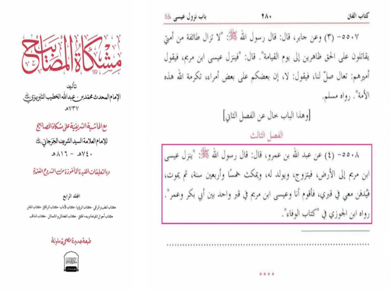 مشكاة المصابيح
تأليف
الإمام المحدث محمد بن عبد الله الخطيب التبريزي
٧٣٧هـ
مع الحاشية الشريفية على مشكاة المصابيح
الإمام العلامة السيد الشريف الجرجاني
٧٤٠هـ - ٨١٦هـ
المجلد الرابع
كتاب الفتن
٢٨٠
باب نزول عيسى
٥٥٠٧ - (٣) وعن جابر، قال: قال رسول الله ﷺ: "لا تزال طائفة من أمتي
يقاتلون على الحق ظاهرين إلى يوم القيامة". قال: "فينزل عيسى ابن مريم، فيقول
أميرهم: تعال صل لنا، فيقول: لا، إن بعضكم على بعض أمراء، تكرمة الله هذه
الأمة". رواه مسلم.
[وهذا الباب خال عن الفصل الثاني]
الفصل الثالث
٥٥٠٨ - (٤) عن عبد الله بن عمرو، قال: قال رسول الله ﷺ: "ينزل عيسى
ابن مريم إلى الأرض، فيتزوج، ويولد له، ويمكث خمسًا وأربعين سنة، ثم يموت،
فيدفن معي في قبري، فأقوم أنا وعيسى ابن مريم في قبر واحد بين أبي بكر وعمر".
رواه ابن الجوزي في "كتاب الوفاء".